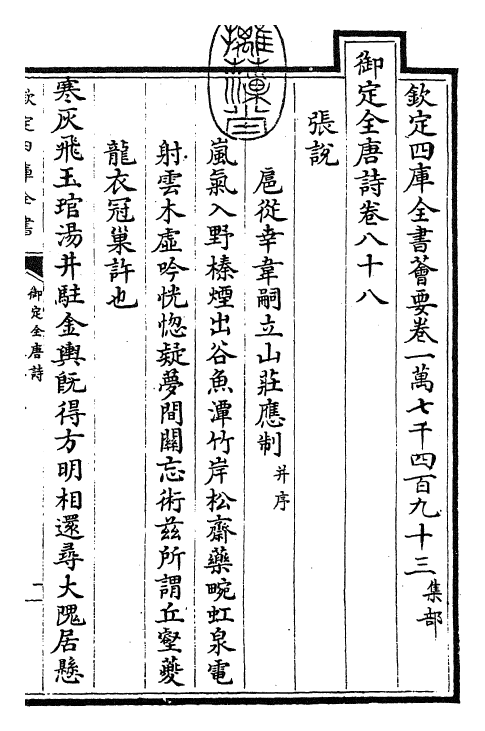 欽定四庫全書薈要卷一萬七千四百九十三 集部
御定全唐詩卷八十八
張說
扈從幸韋嗣立山莊應制 并序
嵐氣入野榛煙出谷魚潭竹岸松齋藥畹虹泉電
射雲木虛吟恍惚疑夢間關忘術兹所謂丘壑夔
龍衣冠巢許也
寒灰飛玉琯湯井駐金輿既得方明相還尋大隗居懸
欽定四庫全書
御定全唐詩